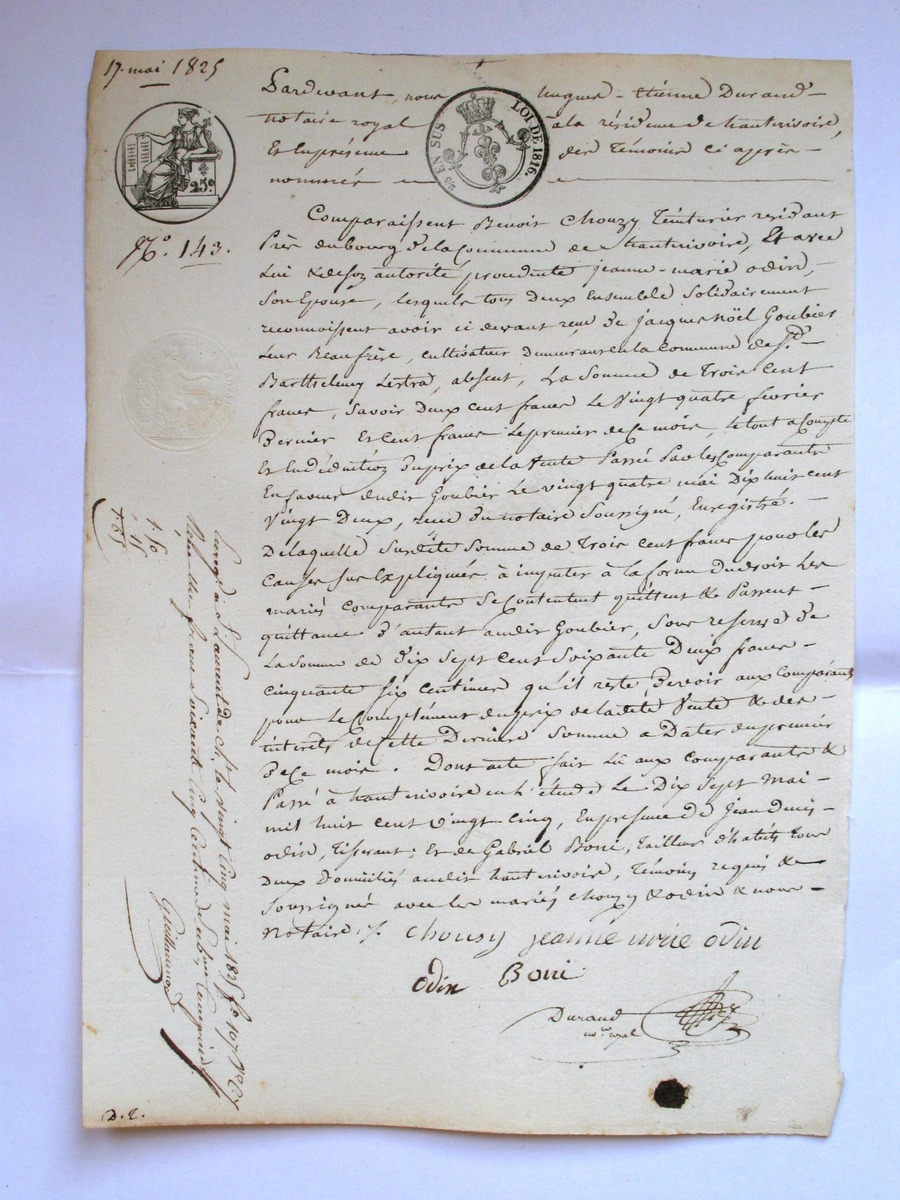 17. mai 1825
Pardevant, nous hugues-étienne Durand
notaire royal à la résidence de hauterivoire,
Et en présence des témoins ci après
nommés
25 EN SUS LOI DE 1816.
25c
No. 143.
Comparaissent Benoit Chouzy Teinturier residant
Près du bourg de la Commune de hauterivoire, Et avec
Lui & de son autorité procedente jeanne-marie odin,
Son Epouse, lesquels tous deux Ensemble Solidairement
reconnoissent avoir ci devant reçu de jacques nöel Goubier
Leur Beaufrère, cultivateur demeurant en la commune de St.
Barthelemy Lestra, absent, La Somme de Trois cent
francs, Savoir Deux cent francs Le Vingt quatre fevrier
Dernier Et Cent francs le premier de Ce mois, le tout a Compte
Et En Déduction du prix de la Vente Passée Par les Comparants
En faveur dudit Goubier Le vingt quatre mai Dix huit cent
Vingt Deux, reçue du notaire Soussigné, Enregistré.
De laquelle Susdite Somme de Trois Cent francs pour les
Causes Sus Expliquées à imputer à la forme du droit Les
mariés Comparants Se Contentent quittent & Passent
quittance d'autant audit Goubier, Sous reserve de
La Somme de Dix Sept Cent Soixante Deux francs
Cinquante Six Centimes qu'il reste Devoir aux Comparants
pour Le Complément du prix de ladite Vente & des
interets de cette Derniere Somme a Dater du premier
De Ce mois. Dont acte fait Lu aux Comparants &
Passé à hauterivoire en l'étude Le Dix Sept Mai
mil huit Cent Vingt Cinq, En presence de Jean Denis
odin, Tisserant; Et de Gabriel Boni, tailleur d'habits tous
Deux Domiciliés audit hauterivoire, Témoins requis &
Soussignés avec les mariés chouzy & odin & nous
Notaire ./.
Chousy jeanne marie odin
odin Boni
Durand
nre royal
Enregé à St Laurent de Ch. le vingt cinq mai 1825 fo 107
Reçu un franc soixante cinq centimes
Guillaumot
1. 50
" 15
1 65
D. E.